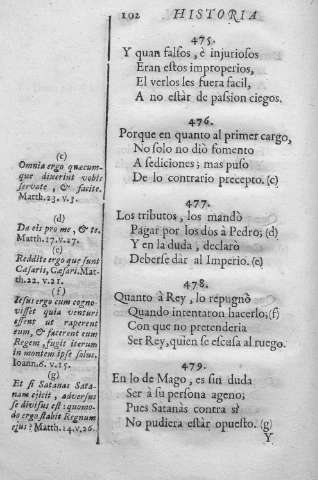 102 HISTORIA
475.
Y quan falsos, è injuriosos
Eran estos improperios,
El verlos les fuera facil,
A no estàr de passion ciegos.
476.
Porque en quanto al primer cargo,
No solo no diò fomento
A sediciones; mas puso
De lo contrario precepto. (c)
477.
Los tributos, los mandò
Pagar por los dos à Pedro; (d)
Y en la duda, declarò
Deberse dar al Imperio. (e)
478.
Quanto à Rey, lo repugnò
Quando intentaron hacerlo, (f)
Con que no pretenderia
Ser Rey, quien se escusa al ruego.
479.
En lo de Mago, es sin duda
Ser à su persona ageno;
Pues Satanàs contra sì
No pudiera estàr opuesto. (g)
Y
(c)
Omnia ergo quæcum-
que dixerint vobis
servate, & facite.
Matth. 23. v. 3.
(d)
Da eis pro me, & te.
Matth. 17. v. 27.
(e)
Reddite ergo quæ sunt
Cæsaris, Cæsari. Mat-
th. 22. v. 21.
(f)
Jesus ergo cum cogno-
visset quia venturi
essent ut raperent
eum, & facerent eum
Regem, fugit iterum
in montem ipse solus.
Ioann. 6. v. 15.
(g)
Et si Satanas Sata-
nam ejicit, adversus
se divisus est: quomo-
do ergo stabit Regnum
ejus? Matth. 12. v. 26.